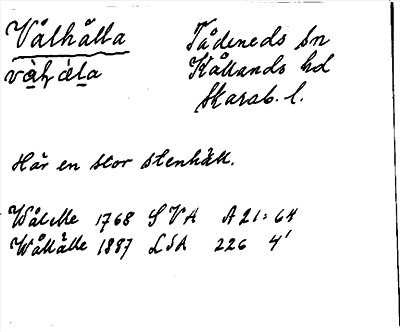 Vålhålla
Tådeneds sn
våh,ål̥a
Kållands hd
Skarab. l.
Här en stor stenhäll.
Wålelle 1768 SVA A21:64
Wålhålle 1887 LSA 226 4'